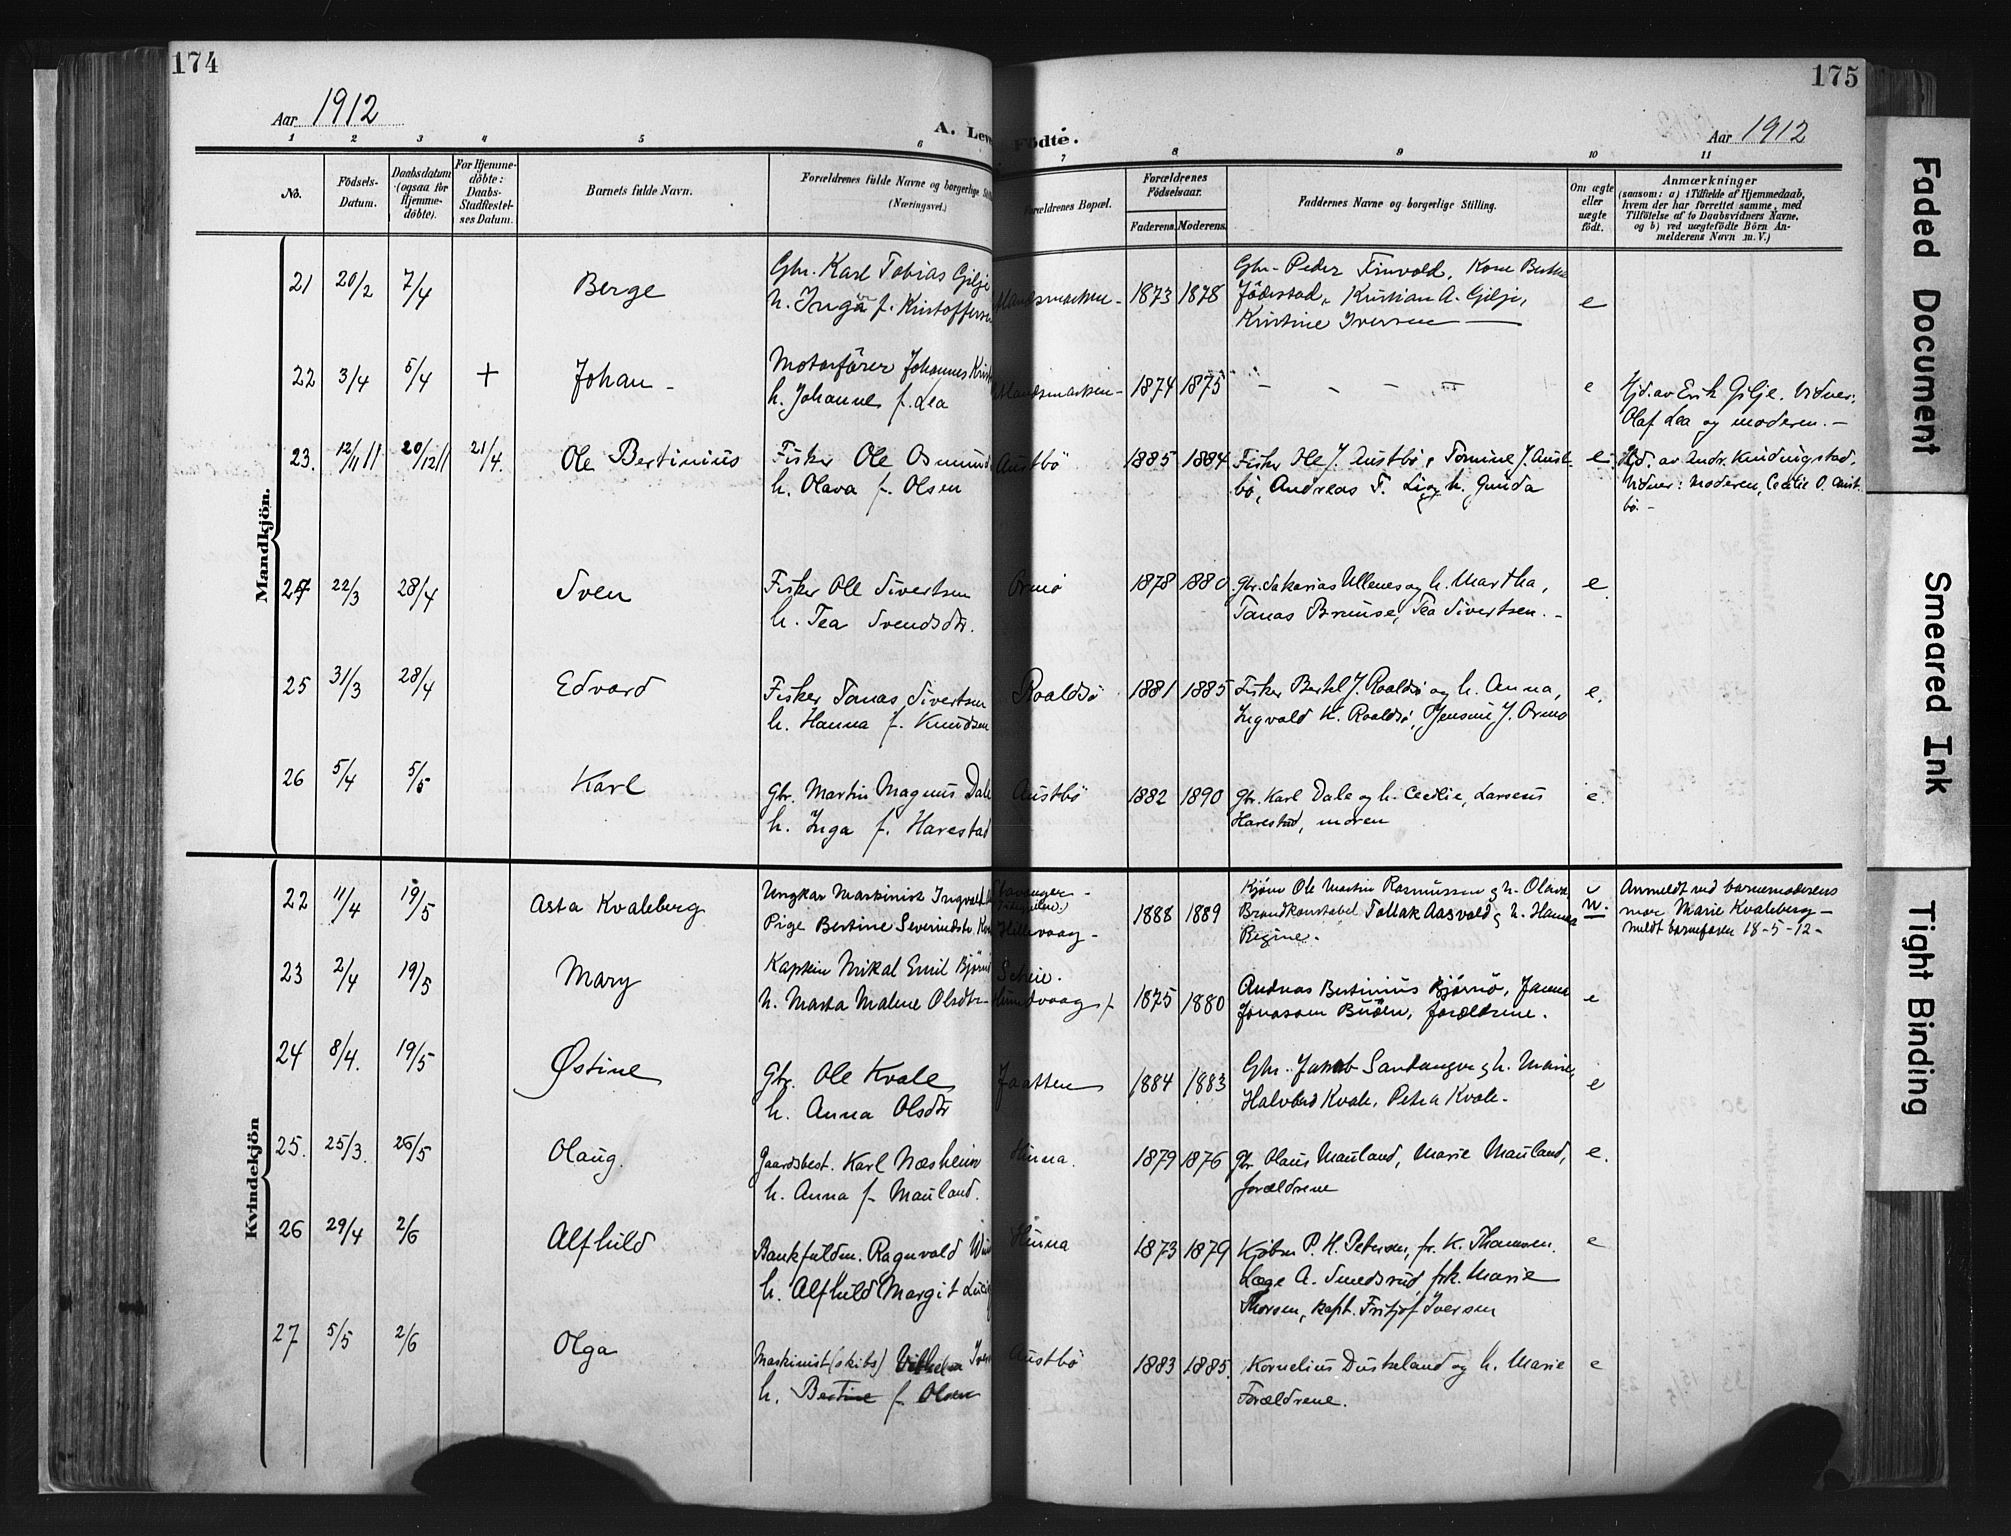 174
175
Aar 1912
Aar 1912
A. Leve
Födte.
1 2 3 4 5 6 7 8 9 10 11
No.
Födsels-
Datum.
Daabsdatum
(ogsaa for
Hjemme-
döbte).
For Hjemme-
döbte:
Daabs-
Stadfestel-
ses Datum.
Barnets fulde Navn.
Forældrenes fulde Navne og borgerlige Stil
(Næringsvei.)
Forældrenes Bopæl.
Forældrenes
Födselsaar.
Faderens. Moderens.
Faddernes Navne og borgerlige Stilling.
Om ægte
eller
uægte
födt.
Anmærkninger
(saasom: a) i Tilfælde af Hjemmedaab,
hvem der har forrettet samme, med
Tilföielse af to Daabsvidners Navne.
og b) ved uægtefödte Börn An-
melderens Navn m. V.)
Mandkjön.
21 20/2 7/4 Berge
Gbr. Karl Tobias Gilje
h. Inga f. Kristoffersen
1873 1878
Gbr. Peder Kristian A. Gilje,
Kristine Iversen
e
22 3/4 5/4 + Johan -
Motorfører Johannes Krist
h. Johanne f. Lea
1874 1875 - - - -
e
Hjd. av Erik Gilje. Vidner:
Olaf Lea og moderen. -
23. 12/11 11 20/12 11 21/4. Ole Bertinius
Fisker Ole Osmund
h. Olava f. Olsen
Austbø 1885 1884
Fisker Ole J. Austbø, Tomine J. Aust-
bø, Andreas F. Li og h. Gunda
e
Hjd. av Andr. Kindingstad.
Vidner: Moderen, Cecilie O. Aust
bø. -
24 22/3 28/4 Sven
Fisker Ole Sivertsen
h. Tea Svendsdtr.
Ormø 1878 1880
Gbr. Sakarias Ullenes og h. Martha,
Tonas Brimse, Tea Sivertsen. -
e.
25 31/3 28/4 Edvard
Fisker Tonas Sivertsen
h. Hanna f. Knudsen
Roaldsø 1881 1885
Fisker Bertel J. Roaldsø og h. Anna,
Ingvald K. Roaldsø, Jensine J. Ormø
e.
26 5/4 5/5 Karl
Gbr. Martin Magnus Dale
h. Inga f. Harestad
Austbø 1882 1890
Gbr. Karl Dale og h. Cecilie, Larsens
Harestad, moren
e.
Kvindekjön
22 11/4 19/5 Asta Kvaleberg
Ungkar Maskinist Ingvald
Pige Bertine Severindtr. Kva
Stavanger -
Hillevaag -
1888 1889
Kjører Ole Martin Rasmussen og h. Olava
Brandkonstabel Tollak Aasvold og h. Hanna
Regine.
u.
Anmeldt ved barnemoderens
mor Marie Kvaleberg -
meldt barnefaren 18-5-12-
23 2/4 19/5 Mary
Kaptein Mikal Emil Bjørnø
h. Marta Malene Olsdtr.
Hundvaag
1875 1880
Andreas Bertinius Bjørnø, Janna
Jonassen Buøen, forældrene.
e
24 8/4. 19/5 Østine
Gbr. Ole Kvale
h. Anna Olsdtr
Jaatten 1884 1883
Gbr. Jakob Sandanger og h. Marie,
Halvard Kvale, Petra Kvale.
e
25. 25/3. 26/5 Olaug.
Gaardsbest. Karl Næsheim
h. Anna f. Mauland.
Hinna. 1879 1876
Gbr Olaus Mauland, Marie Mauland,
forældrene
e.
26 29/4 2/6 Alfhild
Bankfuldm. Ragnvald
h. Alfhild Margit
Hinna 1873 1879
Kjøbm P. H. Petersen, fr. K. Thomsen.
Læge A. Smedsrud frk. Marie
Thorsen, kapt. Fritjof Iversen
e
27 5/5 2/6 Olga
Maskinist (skibs) Vilhelm Iver
h. Bertine f. Olsen
Austbø 1883 1885.
Kornelius Duskeland og h. Marie
Forældrene.
e
Faded Document
Smeared Ink
Tight Binding